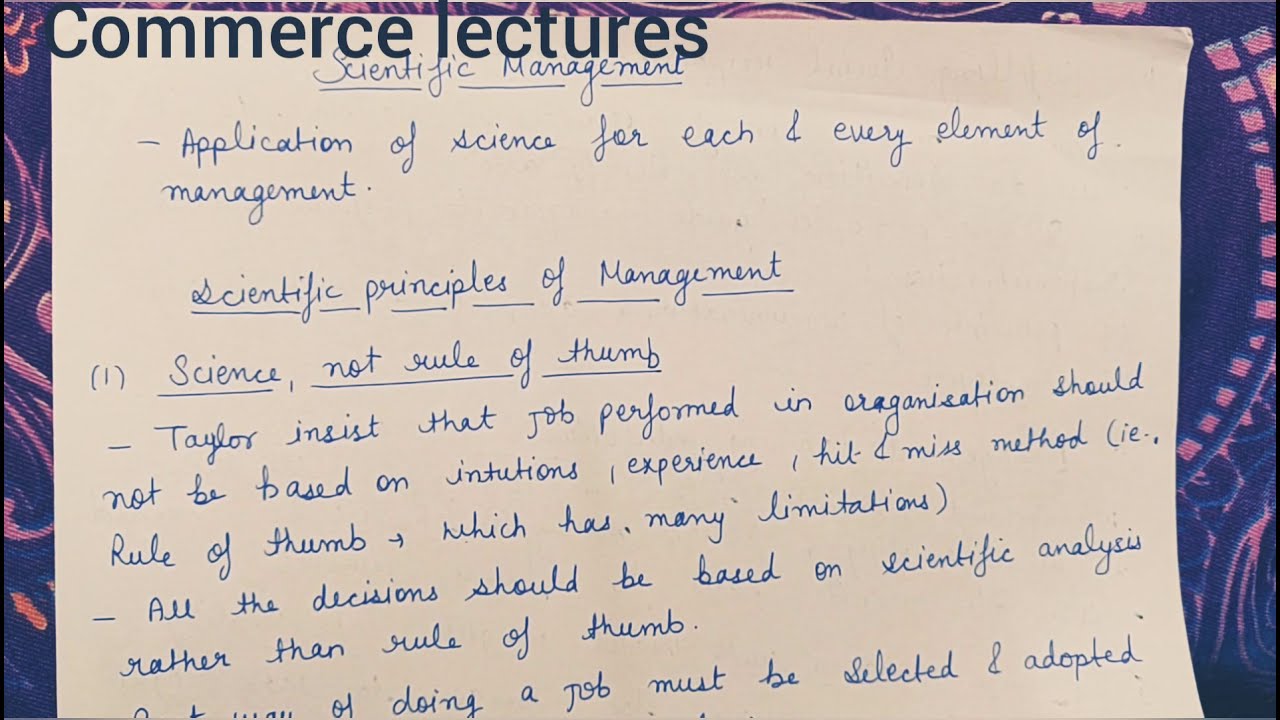 Commerce lectures
Scientific Management
- Application of science for each & every element of
management.
Scientific principles of Management
(1) Science, not rule of thumb
- Taylor insist that job performed in oraganisation should
not be based on intutions, experience, hit & miss method (ie.,
Rule of thumb → which has many limitations)
- All the decisions should be based on scientific analysis
rather than rule of thumb.
way of doing a job must be selected & adopted